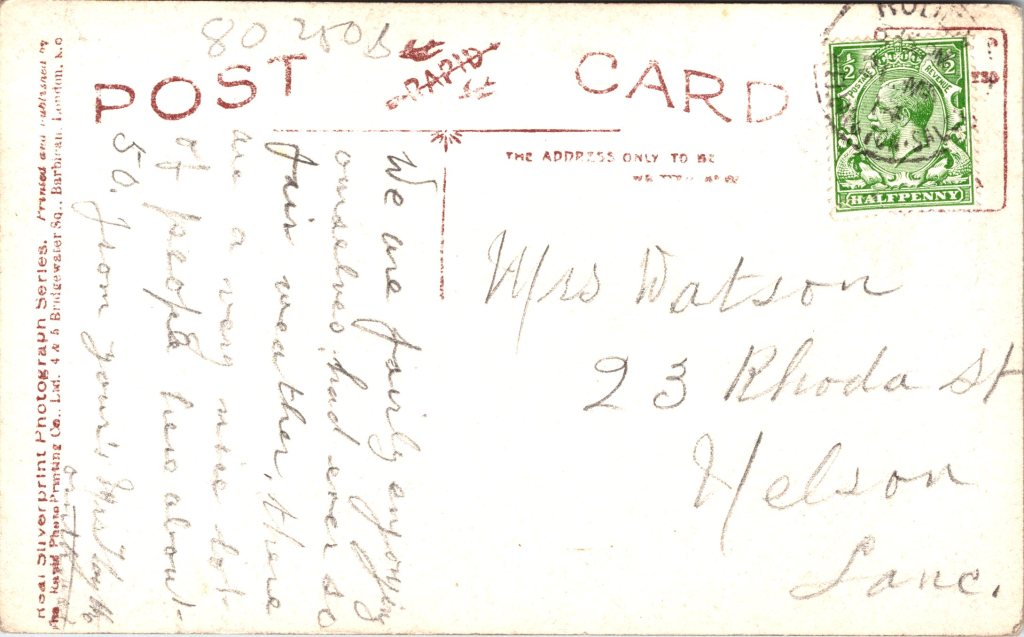 80 250b
POST CARD
RAPID
THE ADDRESS ONLY TO BE
HALFPENNY
We are fairly enjoying
ourselves, had ever so
fair weather, there
are a very nice lot
of people here about
50. from your's Mrs
Mrs Watson
23 Rhoda St
Nelson
Lanc.
Real Silverprint Photograph Series. Printed and Published by
The Rapid Photo Printing Co., Ltd. 4 & 5 Bridgewater Sq., Barbican, London,